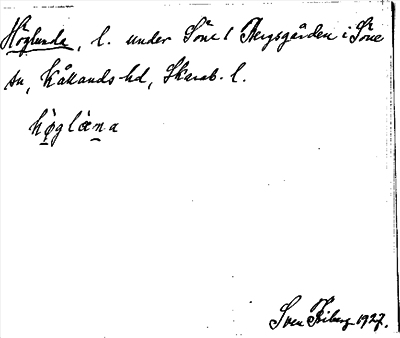 Höglunda, l. under Söne 1 Bergsgården i Söne
sn, Kållands hd, Skarab. l.
høglæna
Sven 1927.